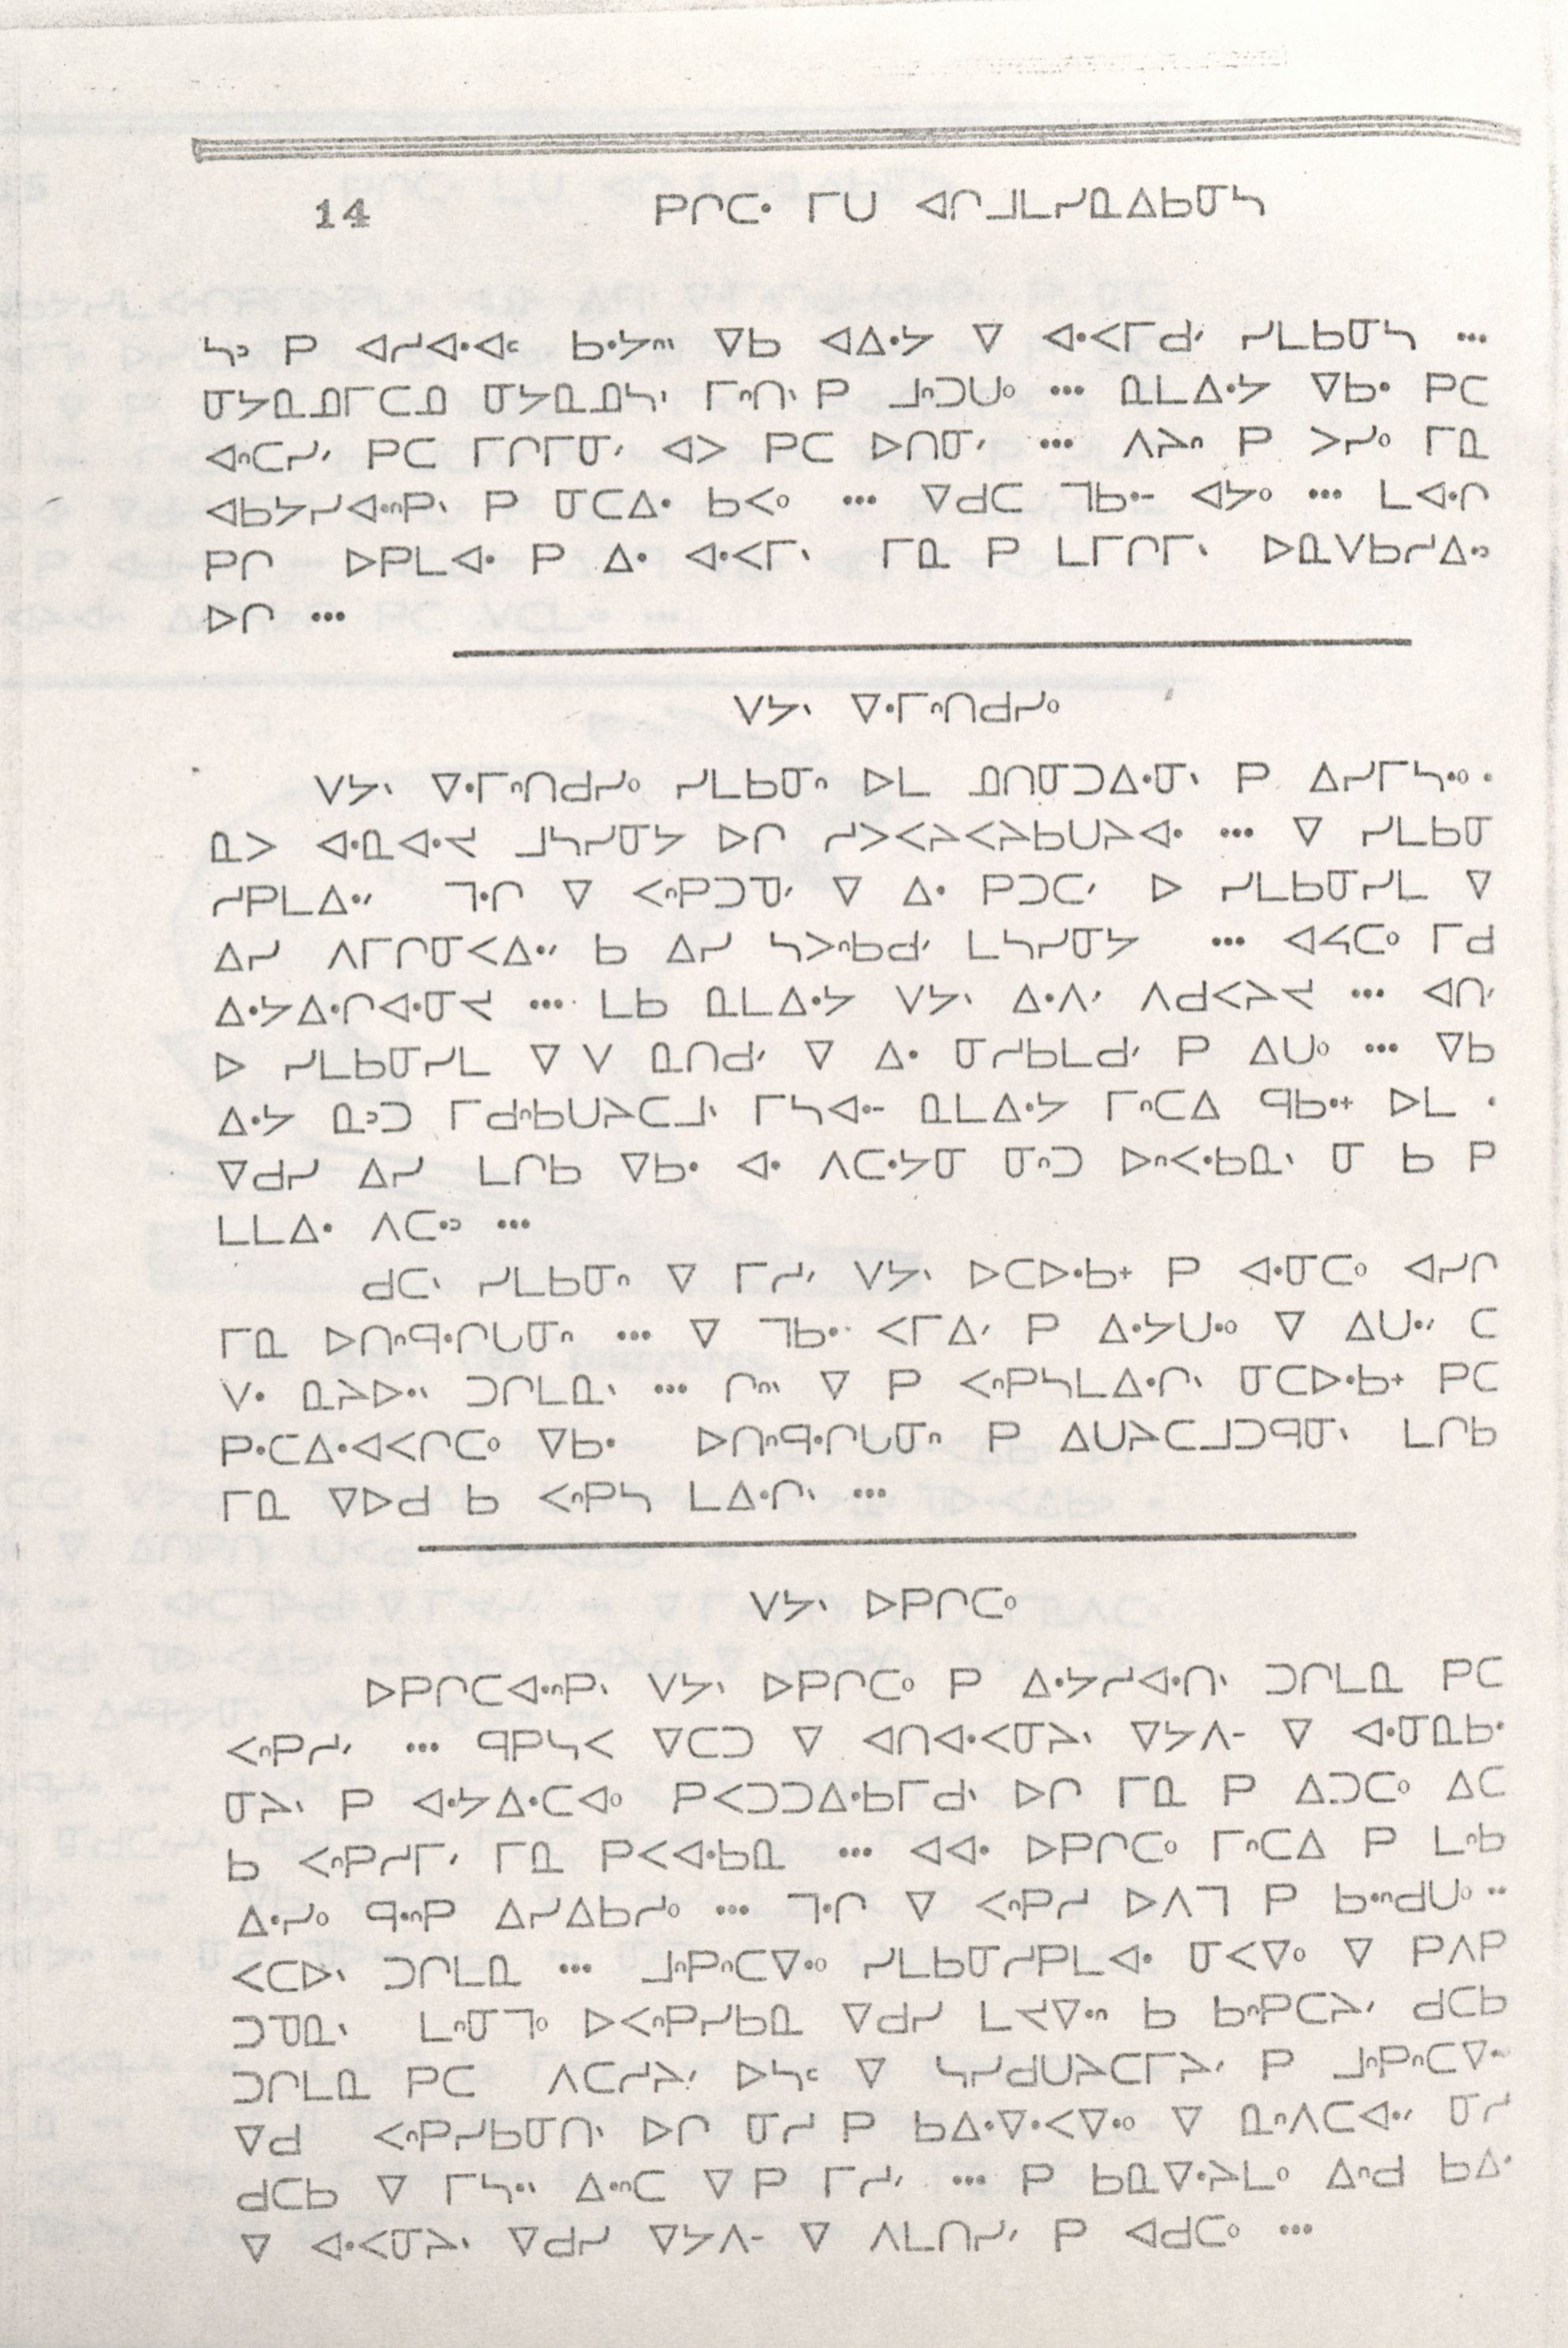 14 ᑭᒋᑕᐧ ᒥᑌ ᐊᒋᒧᒪᓯᓇᐃᑲᓂᓴ
ᓴᐣ ᑭ ᐊᓯᐘᐊᑉ ᑲᐧᔭᐢᐠ ᐁᑲ ᐊᐃᐧᔭ ᐁ ᐊᐧᐸᒥᑯᐟ ᓯᒪᑲᓂᓴ •••
ᓂᔭᓇᓄᒥᑕᓄ ᓂᔭᓇᓄᓴᐠ ᒥᐢᑎᐠ ᑭ ᒧᐢᑐᑌᐤ ••• ᓇᒪᐃᐧᔭ ᐁᑲᐧ ᑭᑕ
ᐊᐢᑕᓯᐟ ᑭᑕ ᒥᒋᒥᓂᐟ ᐊᐳ ᑭᑕ ᐅᑎᓂᐟ ••• ᐱᔨᐢ ᑭ ᐳᓯᐤ ᒥᓇ
ᐊᑲᔭᓯᐊᐧᐢᑭᐠ ᑭ ᓂᑕᐃᐧ ᑲᐸᐤ ••• ᐁᑯᑕ ᒣᑲᐧᐨ ᐊᔭᐤ ••• ᒪᐊᐧᒋ
ᑭᒋ ᐅᑭᒪᐊᐧ ᑭ ᐃᐧ ᐊᐧᐸᒥᐠ ᒥᓇ ᑭ ᒪᒥᒋᒥᐠ ᐅᓇᐯᑲᓯᐃᐧᐣ
ᐅᒋ •••
ᐯᔭᐠ ᐁᐧᒥᐢᑎᑯᓯᐤ
ᐯᔭᐠ ᐁᐧᒥᐢᑎᑯᓯᐤ ᓯᒪᑲᓂᐢ ᐅᒪ ᓄᑎᓂᑐᐃᐧᓂᐠ ᑭ ᐃᓯᒥᓴᐧᐤ •
ᓇᐳ ᐊᐧᓇᐊᐧᔪ ᒧᓴᓯᓂᔭ ᐅᒋ ᓯᐳᐸᔨᐸᔨᑲᑌᔨᐊᐧ ••• ᐁ ᓯᒪᑲᓂ
ᓯᑭᒪᐃᐧᐟ ᒣᐧᒋ ᐁ ᐸᐢᑭᑐᓀᐟ ᐁ ᐃᐧ ᑭᑐᑕᐟ ᐅ ᓯᒪᑲᓂᓯᒪ ᐁ
ᐃᓯ ᐱᒥᒋᓂᐸᐃᐧᐟ ᑲ ᐃᓯ ᓴᐳᐢᑲᑯᐟ ᒪᓴᓯᓂᔭ ••• ᐊᔦᑕᐤ ᒥᑯ
ᐃᐧᔭᐃᐧᒋᐊᐧᓂᔪ ••• ᒪᑲ ᓇᒪᐃᐧᔭ ᐯᔭᐠ ᐃᐧᐱᐟ ᐱᑯᐸᔨᔪ ••• ᐊᑎᐟ
ᐅ ᓯᒪᑲᓂᓯᒪ ᐁ ᐯ ᓇᑎᑯᐟ ᐁ ᐃᐧ ᓂᓯᑲᒪᑯᐟ ᑭ ᐃᑌᐤ ••• ᐁᑲ
ᐃᐧᔭ ᓇᐣᑐ ᒥᑯᐢᑲᑌᔨᑕᒧᐠ ᒥᓴᐊᐧᐨ ᓇᒪᐃᐧᔭ ᒥᐢᑕᐃ ᑫᑲᐧᐩ ᐅᒪ •
ᐁᑯᓯ ᐃᓯ ᒪᒋᑲ ᐁᑲᐧ ᐊᐧ ᐱᑕᐧᔭᓂ ᓂᐢᑐ ᐅᐢᐸᐧᑲᓇᐠ ᓂ ᑲ ᑭ
ᒪᒪᐃᐧ ᐱᑕᐧᐣ •••
ᑯᑕᐠ ᓯᒪᑲᓂᐢ ᐁ ᒥᓯᐟ ᐯᔭᐠ ᐅᑕᐅᐧᑲᐩ ᑭ ᐊᐧᓂᑕᐤ ᐊᓯᒋ
ᒥᓇ ᐅᑎᐢᑫᐧᒋᒐᓂᐢ ••• ᐁ ᒣᑲᐧ ᐸᒥᐃᐟ ᑭ ᐃᐧᔭᑌᐧᐤ ᐁ ᐃᑌᐧᐟ ᑕ
ᐯᐧ ᓇᔨᐅᐧᐠ ᑐᒋᒪᓇᐠ ••• ᒋᐢᐠ ᐁ ᑭ ᐸᐢᑭᓴᒪᐃᐧᒋᐠ ᓂᑕᐅᐧᑲᐩ ᑭᑕ
ᑭᐧᑕᐃᐧᐊᐸᒋᑕᐤ ᐁᑲᐧ ᐅᑎᐢᑫᐧᒋᒐᓂᐢ ᑭ ᐃᑌᔨᑕᒧᑐᑫᓂᐠ ᒪᒋᑲ
ᒥᓇ ᐁᐅᑯ ᑲ ᐸᐢᑭᓴ ᒪᐃᐧᒋᐠ •••
ᐯᔭᐠ ᐅᑭᒋᑕᐤ
ᐅᑭᒋᑕᐊᐧᐢᑭᐠ ᐯᔭᐠ ᐅᑭᒋᑕᐤ ᑭ ᐃᐧᔭᓯᐊᐧᑎᐠ ᑐᒋᒪᓇ ᑭᑕ
ᐸᐢᑭᓯᐟ ••• ᑫᑭᓴᐸ ᐁᑕᑐ ᐁ ᐊᑎᐊᐧᐸᓂᔨᐠ ᐁᔭᐱᐨ ᐁ ᐊᐧᓂᓇᑲᐧ
ᓂᔨᐠ ᑭ ᐊᐧᔭᐃᐧᑕᐊᐤ ᑭᐸᑐᑐᐃᐧᑲᒥᑯᐠ ᐅᒋ ᒥᓇ ᑭ ᐃᑐᑕᐤ ᐃᑕ
ᑲ ᐸᐢᑭᓯᒥᐟ ᒥᓇ ᑭᐸᐊᐧᑲᓇ ••• ᐊᐊᐧ ᐅᑭᒋᑕᐤ ᒥᐢᑕᐃ ᑭ ᒪᐢᑲ
ᐃᐧᓯᐤ ᑫᐧᐢᑭ ᐃᓯᐃᑲᓯᐤ ••• ᒣᐧᒋ ᐁ ᐸᐢᑭᓯ ᐅᐱᒣ ᑭ ᑲᐧᐢᑯᑌᐤ ••
ᐸᑕᐅᐠ ᑐᒋᒪᓇ ••• ᒧᐢᑭᐢᑕᐁᐧᐤ ᓯᒪᑲᓂᓯᑭᒪᐊᐧ ᓂᐸᐁᐤ ᐁ ᑭᐱᑭ
ᑐᓀᓇᐠ ᒪᐢᓂᒣᐤ ᐅᐸᐢᑭᓯᑲᓇ ᐁᑯᓯ ᒪᔪᐁᐧᐢ ᑲ ᑲᐢᑭᑕᔨᐟ ᑯᑕᑲ
ᑐᒋᒪᓇ ᑭᑕ ᐱᑕᓯᔨᐟ ᐅᓴᑉ ᐁ ᓴᓯᑯᑌᔨᑕᒥᔨᐟ ᑭ ᒧᐢᑭᐢᑕᐁᐧ
ᐁᑯ ᐸᐢᑭᓯᑲᓂᑎᐠ ᐅᒋ ᓂᓯ ᑭ ᑲᐃᐧᐁᐧᐸᐁᐧᐤ ᐁ ᓇᐢᐱᑕᐊᐧᐟ ᓂᓯ
ᑯᑕᑲ ᐁ ᒥᓴᐧᐠ ᐃᐧᐢᑕ ᐁ ᑭ ᒥᓯᐟ ••• ᑭ ᑲᓇᐁᐧᔨᒪᐤ ᐃᐢᑯ ᑲᐃᐧ
ᐁ ᐊᐧᐸᓂᔨᐠ ᐁᑯᓯ ᐁᔭᐱᐨ ᐁ ᐱᒪᑎᓯᐟ ᑭ ᐊᑯᑕᐤ •••